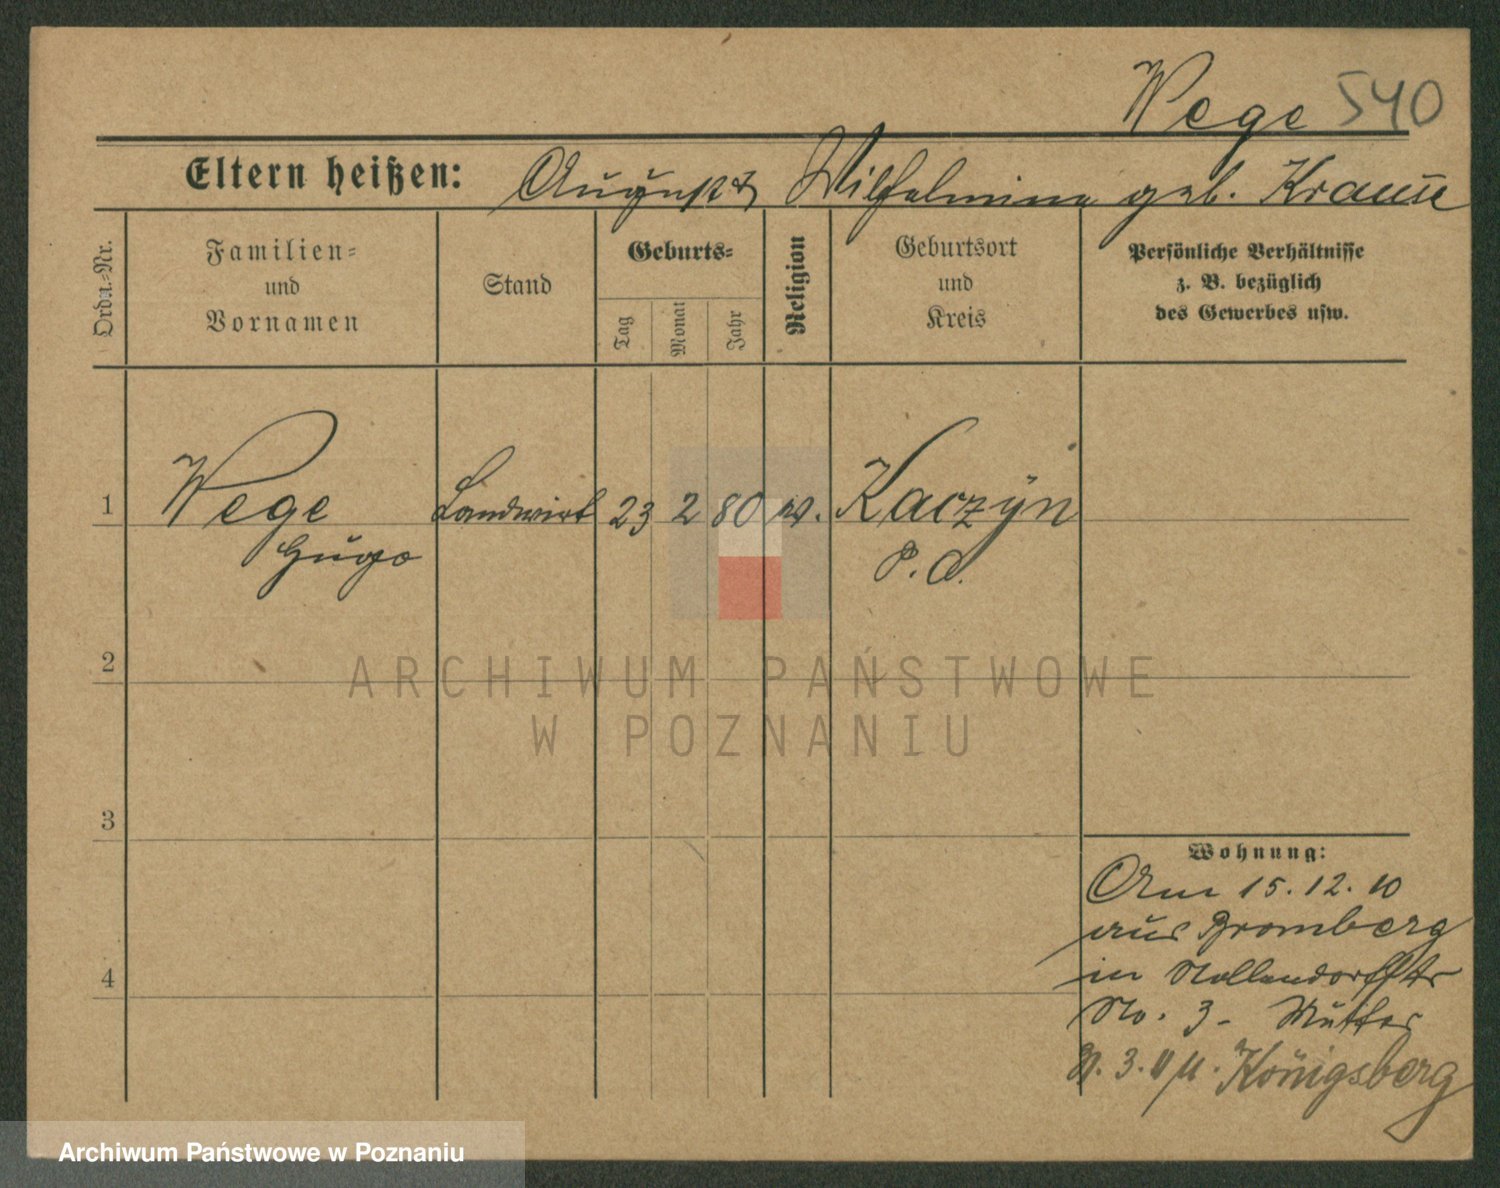 Wege 540
Eltern heißen: August u Wilhelmine geb. Krause
Ordn.-Nr.
Familien- und Vornamen
Stand
Geburts-
Tag
Monat
Jahr
Religion
Geburtsort und Kreis
Persönliche Verhältnisse
z. B. bezüglich
des Gewerbes usw.
1 Wege Landwirt 23 2 80 ev. Kaczyn
Hugo P. O.
2
3
4
Wohnung:
Am 15.12.10
aus Bromberg
in Nollendorffstr
No. 3 - Mutter
3. 11 Königsberg
ARCHIWUM PAŃSTWOWE
W POZNANIU
Archiwum Państwowe w Poznaniu